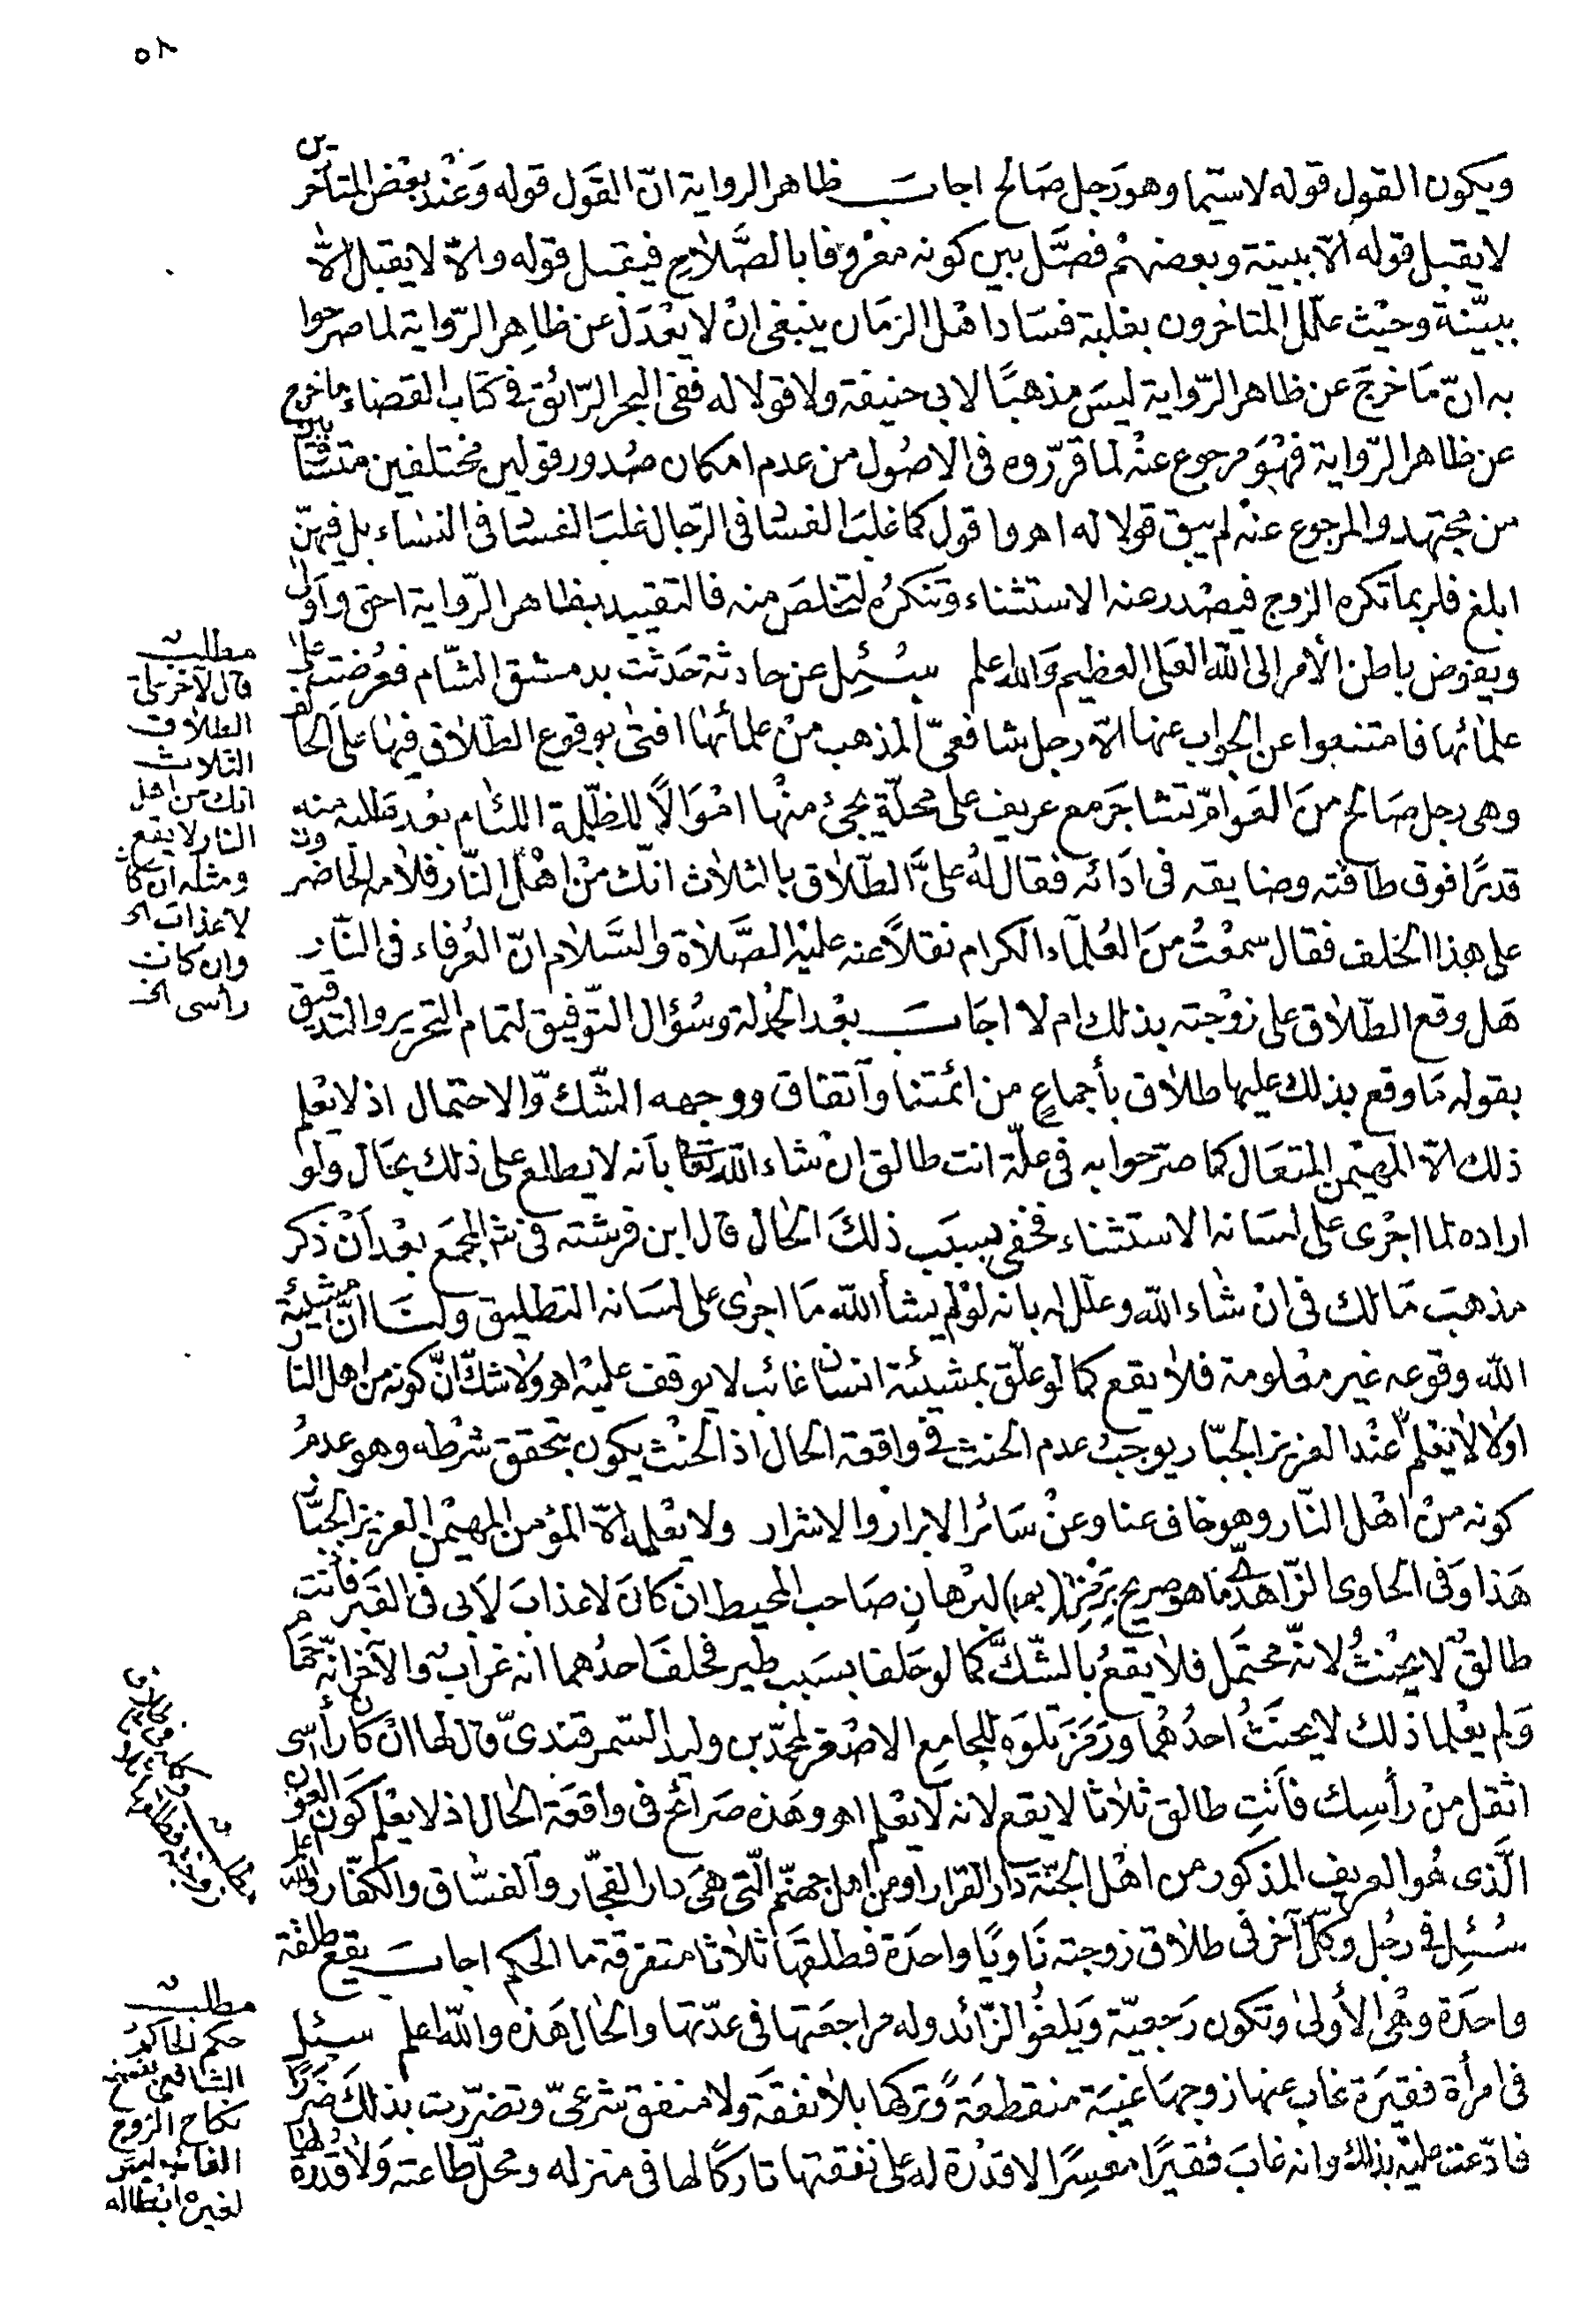 ٥٨
ويكون القول قوله لاسيما وهو رجل صالح اجاب ظاهر الرواية ان القول قوله وعند بعض المتأخرين
لا يقبل قوله الا ببينة وبعضهم فصل بين كونه معروفا بالصلاح فيقبل قوله والا لا يقبل الا
ببينة وحيث علل المتاخرون بغلبة فساد اهل الزمان ينبغى ان لا يعدل عن ظاهر الرواية لما صرحوا
به ان ما خرج عن ظاهر الرواية ليس مذهبا لابى حنيفة ولا قولا له ففى البحر الرائق فى كتاب القضاء ما خرج
عن ظاهر الرواية فهو مرجوع عنه لما قرروه فى الاصول من عدم امكان صدور قولين مختلفين متساويين
من مجتهد والمرجوع عنه لم يبق قولا له اهـ واقول كما غلب الفساد فى الرجال غلب الفساد فى النساء بل فيهن
ابلغ فلربما تكره الزوج فيصدر عنه الاستثناء وتنكره لتخلص منه فالتقييد بظاهر الرواية احق واولى
ويفوض باطن الأمر الى الله العلى العظيم والله اعلم سئل عن حادثة حدثت بدمشق الشام فعرضت على
علمائها فامتنعوا عن الجواب عنها الا رجل شافعى المذهب من علمائها افتى بوقوع الطلاق فيها على الحالف
وهى رجل صالح من العوام تشاجر مع عريف على محلة يجئ منها اموالا للظلمة اللئام بعد طلبه منه
قدرا فوق طاقته وضايقه فى ادائه فقال له على الطلاق بالثلاث انك من اهل النار فلامه الحاضرون
على هذا الحلف فقال سمعت من العلماء الكرام نقلا عنه عليه الصلاة والسلام ان العرفاء فى النار
هل وقع الطلاق على زوجته بذلك ام لا اجاب بعد الحمدلة وسؤال التوفيق لتمام التحرير والتدقيق
بقوله ما وقع بذلك عليها طلاق بأجماع من ائمتنا واتفاق ووجهه الشك والاحتمال اذ لا يعلم
ذلك الا المهيمن المتعال كما صرحوا به فى علة انت طالق ان شاء الله تعالى بأنه لا يطلع على ذلك بحال ولو
اراده لما اجرى على لسانه الاستثناء فخفى بسبب ذلك الحال قال ابن فرشته فى شرح المجمع بعد ان ذكر
مذهب مالك فى ان شاء الله وعلل له بانه لو لم يشأ الله ما اجرى على لسانه التطليق ولنا ان مشيئة
الله وقوعه غير معلومة فلا يقع كما لو علق بمشيئة انسان غائب لا يوقف عليه اهـ ولا شك ان كونه من اهل النار
اولا لا يعلم عند العزيز الجبار يوجب عدم الحنث فى واقعة الحال اذ الحنث يكون بتحقق شرطه وهو عدم
كونه من اهل النار وهو خاف عنا وعن سائر الابرار والاشرار ولا يعلمه الا المؤمن المهيمن العزيز الجبار
هذا وفى الحاوى الزاهدى ما هو صريح برمز (بم) لبرهان صاحب المحيط ان كان لا عذاب لابى فى القبر فأنت
طالق لا يحنث لانه محتمل فلا يقع بالشك كما لو حلفا بسبب طير فحلف احدهما انه غراب والآخر انه حمام
ولم يعلما ذلك لا يحنث احدهما ورمز تلوه للجامع الاصغر لمحمد بن وليد السمرقندى قال لها ان كان رأسى
اثقل من رأسك فأنت طالق ثلاثا لا يقع لانه لا يعلم اهـ وهذه صرائح فى واقعة الحال اذ لا يعلم كون العون
الذى هو العريف المذكور من اهل الجنة دار القرار او من اهل جهنم التى هى دار الفجار والفساق والكفار والله اعلم
سئل فى رجل وكل آخر فى طلاق زوجته ناويا واحدة فطلقها ثلاثا متفرقة ما الحكم اجاب يقع طلقة
واحدة وهى الأولى وتكون رجعية ويلغو الزائد وله مراجعتها فى عدتها والحال هذه والله اعلم سئل
فى امرأة فقيرة غاب عنها زوجها غيبة منقطعة وتركها بلا نفقة ولا منفق شرعى وتضررت بذلك ضررا
فادعت عليه بذلك وانه غاب فقيرا معسرا لا قدرة له على نفقتها تاركا لها فى منزله ومحل طاعته ولا قدرة لها
مطلب
قال لآخر على
الطلاق
الثلاث
انك من اهل
النار لا يقع
ومثله ان كان
لا عذاب الخ
وان كانت
رأسى الخ
مطلب
حكم الحاكم
الشافعى بفسخ
نكاح الزوج
الغائب ليس
لغيره ابطاله